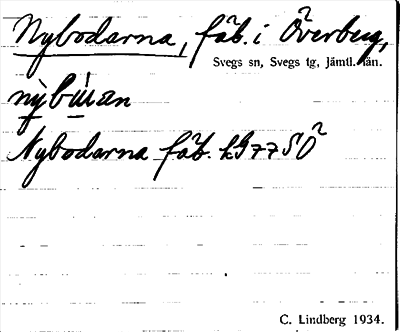 Nybodarna, fäb. i Överberg,
Svegs sn, Svegs tg, Jämtl. län.
Nybodarna fäb. LG77SÖ
C. Lindberg 1934.